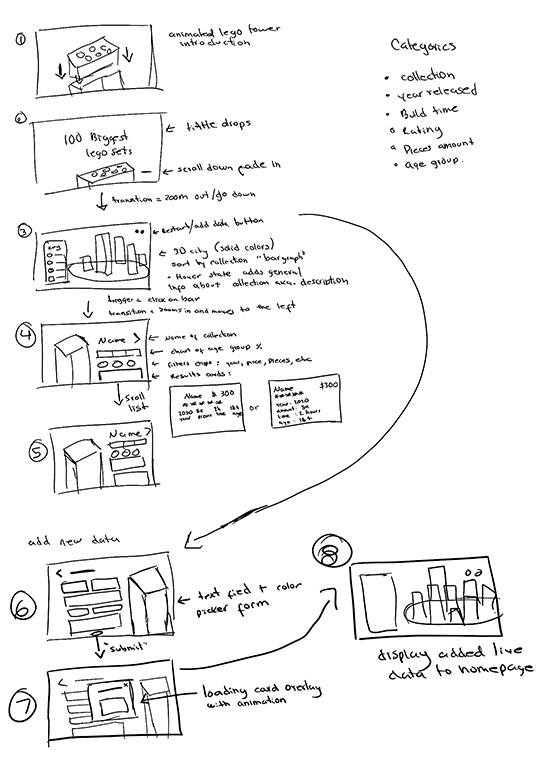 ①
animated lego tower
introduction
Categories
• collection
• year released
• Build time
• Rating
• Pieces amount
• age group.
100 Biggest
lego sets
← tittle drops
← scroll down fade in
transition = zoom out/go down
③
← Restart/add data button
← 3D city (solid colors)
sort by collection "bar graph"
• Hover state adds general
info about collection aka. description
trigger = click on bar
transition = zooms in and moves to the left
④
Name >
← Name of collection
← chart of age group %
← filters chips: year, price, pieces, etc
← Results cards:
Scroll
list
Name $300
or
Name $300
year: 2020
amount: 5k
time: 2 hours
age: 18+
⑤
Name >
add new data
⑥
← text fied + color
picker form
"submit"
⑦
← loading card overlay
with animation
⑧
display added live
data to homepage